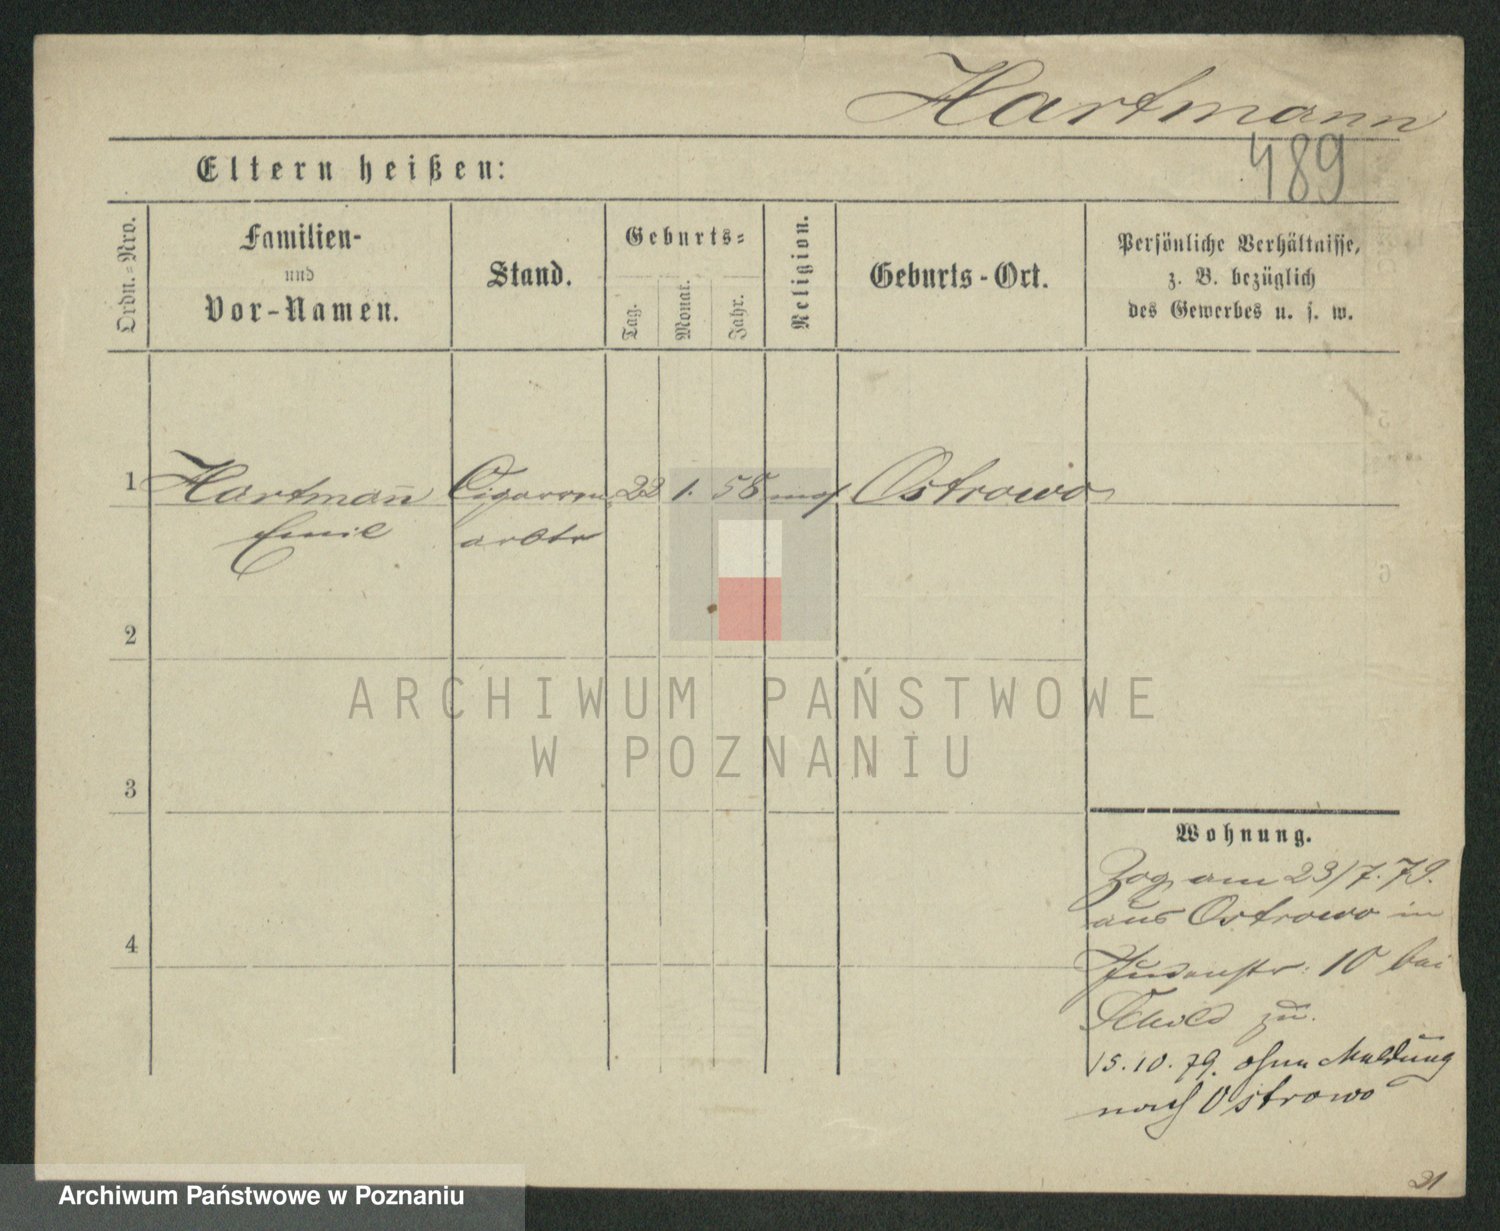 Hartmann
489
Eltern heißen:
Ordn.-Nro.
Familien-
und
Vor-Namen.
Stand.
Geburts-
Tag.
Monat.
Jahr.
Religion.
Geburts-Ort.
Persönliche Verhältnisse,
z. B. bezüglich
des Gewerbes u. s. w.
1 Hartman̄ Cigarren 22 1. 58 mos Ostrowo
Emil arbtr
2
3
4
ARCHIWUM PAŃSTWOWE
W POZNANIU
Wohnung.
Zog am 23/7. 79.
aus Ostrowo in
Judenstr. 10 bei
Schild zu.
15. 10. 79. ohne Meldung
nach Ostrowo
21
Archiwum Państwowe w Poznaniu